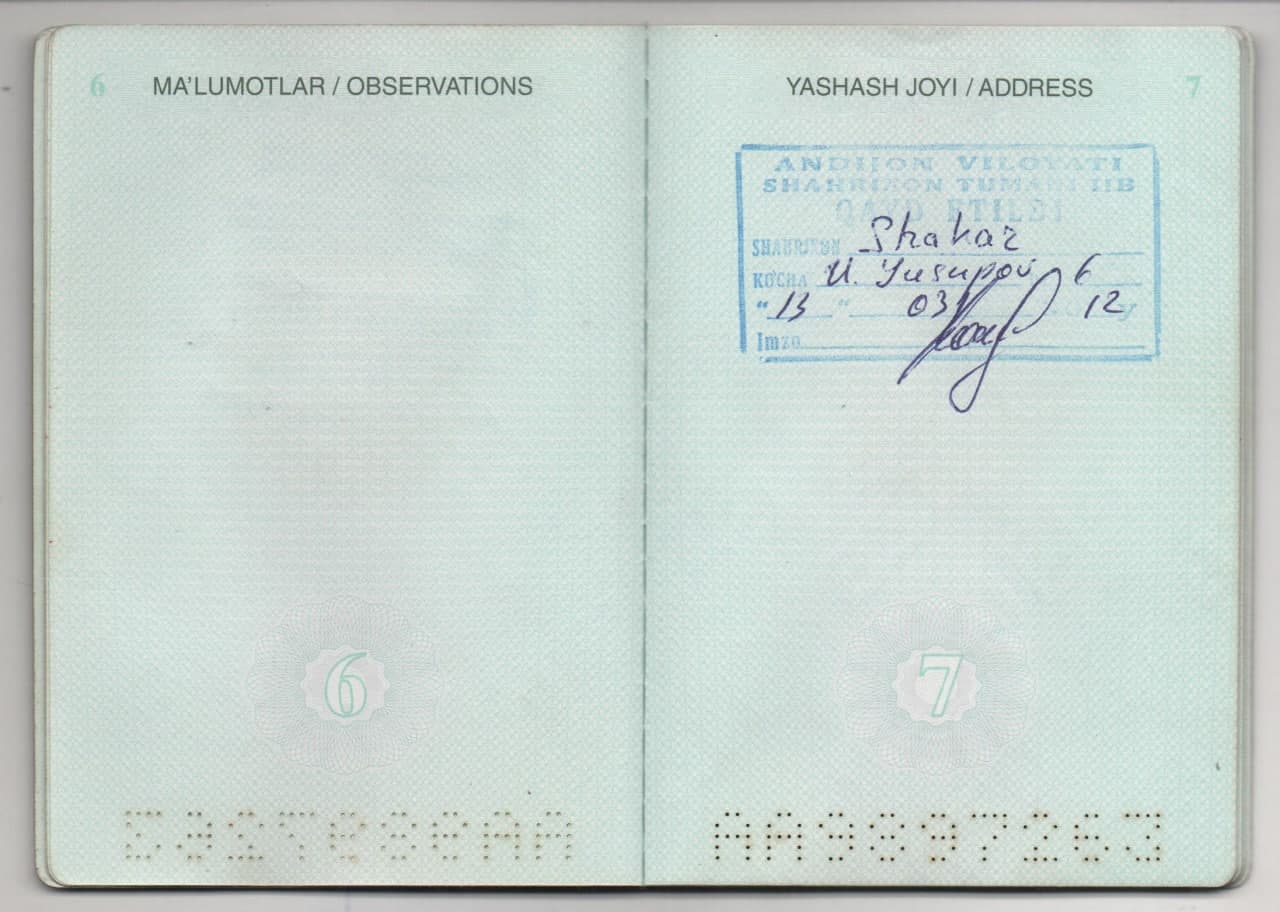 6 MA'LUMOTLAR / OBSERVATIONS
6
YASHASH JOYI / ADDRESS 7
ANDIJON VILOYATI
SHAHRIXON TUMANI IIB
QAYD ETILDI
SHAHRIXON Shakar
KO'CHA U. Yusupov 6
"13" 03 12 y
Imzo
7
AA9897263